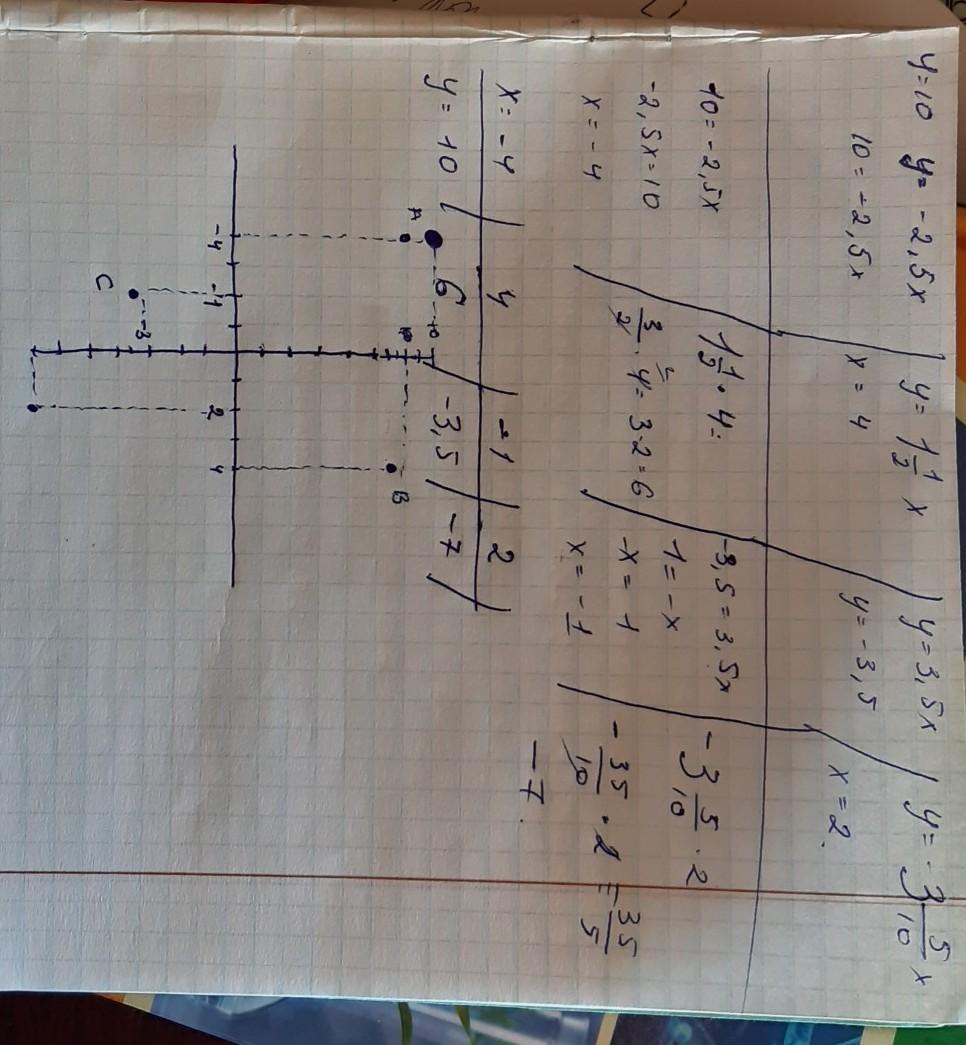 y=10 y=-2,5x / y=1 1/2 x / y=3,5x / y=-3 5/10 x
10=-2,5x x=4 y=-3,5 x=2.
10=-2,5x 1 1/2 · 4= -3,5=3,5x -3 5/10 · 2
-2,5x=10 3/2 · 4=3·2=6 1=-x -35/10 · 2 = 35/5
x=-4 -x=1
x=-1 -7.
x=-4 / 4 / -1 / 2
y=10 / 6 / -3,5 / -7 /
10
A
B
-4 -1 2 4
-3
C